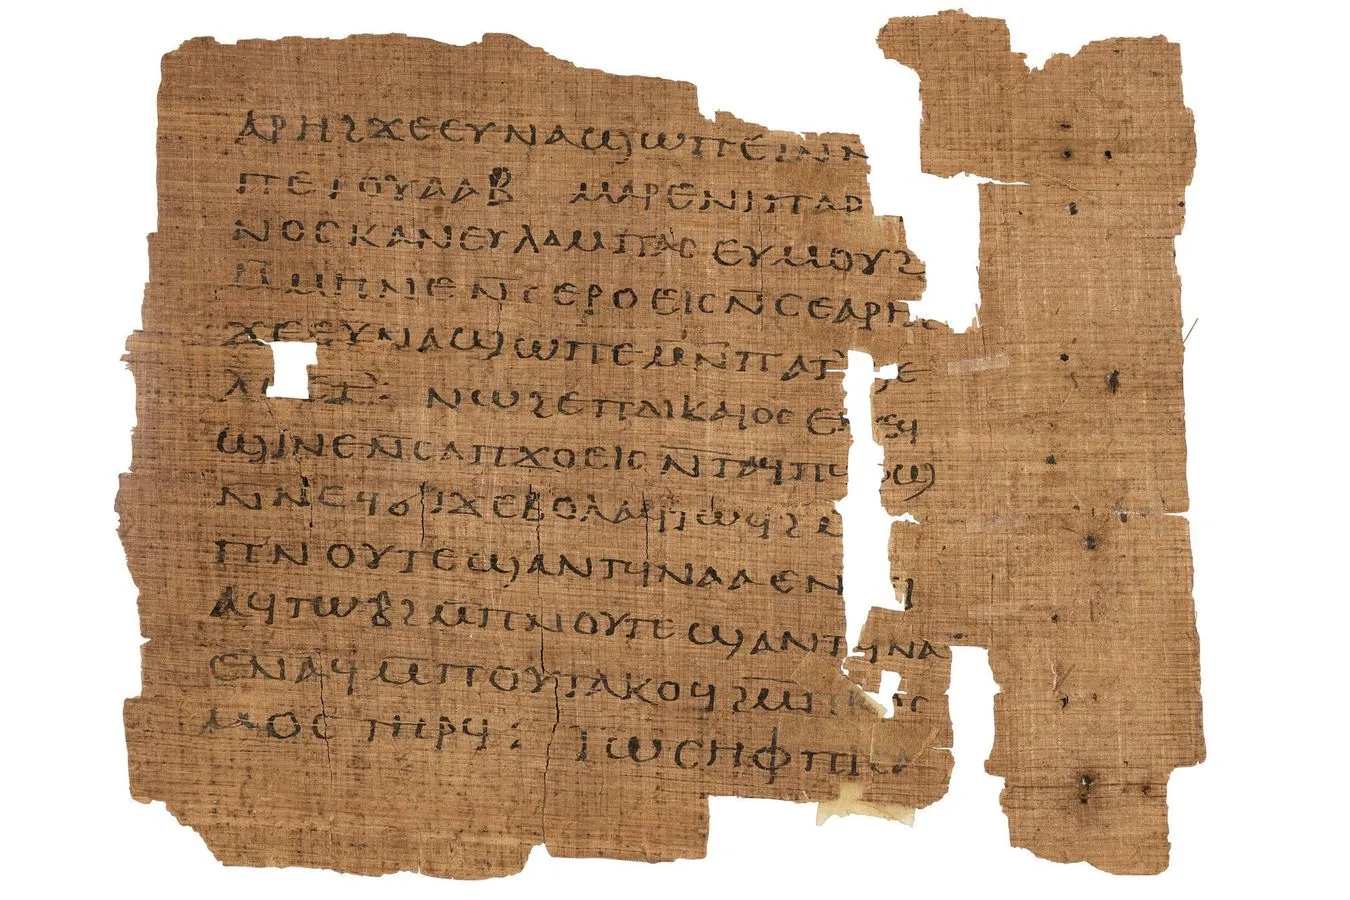 ⲁⲣⲏϩ ϫⲉ ⲉⲩⲛⲁϣⲱⲡⲉ
ⲡⲉⲧⲟⲩⲁⲁⲃ ⲙⲁⲣⲉⲛⲓⲡⲁⲣ
ⲛⲟⲥ ⲕⲁ ⲛⲉⲩⲗⲁⲙⲡⲁⲥ ⲉⲩⲙⲟⲩϩ
ⲙ̄ⲙⲏⲛⲉ ⲛ̄ⲥⲉⲣⲟⲉⲓⲥ ⲛ̄ⲥⲉⲁⲣⲏ
ϫⲉ ⲉⲩⲛⲁϣⲱⲡⲉ ⲙⲛ̄
ⲛⲱϩⲉ ⲡⲇⲓⲕⲁⲓⲟⲥ
ϣⲓⲛⲉ ⲛⲥⲁ ⲡϫⲟⲉⲓⲥ ⲛ̄ⲧⲁϥⲡ
ⲛ̄ⲛⲉϥϭⲓϫ ⲉⲃⲟⲗ ⲁϥⲧⲱϥϩ
ⲡⲛⲟⲩⲧⲉ ϣⲁⲛⲧϥⲛⲁⲁ
ⲁϥⲧⲱⲃϩ ⲙ̄ⲡⲛⲟⲩⲧⲉ ϣⲁⲛⲧϥⲛⲁ
ⲉⲛⲁϥ ⲙⲡⲟⲩⲧⲁⲕⲟϥ ϩⲙ̄
ⲙⲟⲥ ⲧⲏⲣϥ : ⲓⲱⲥⲏⲫ